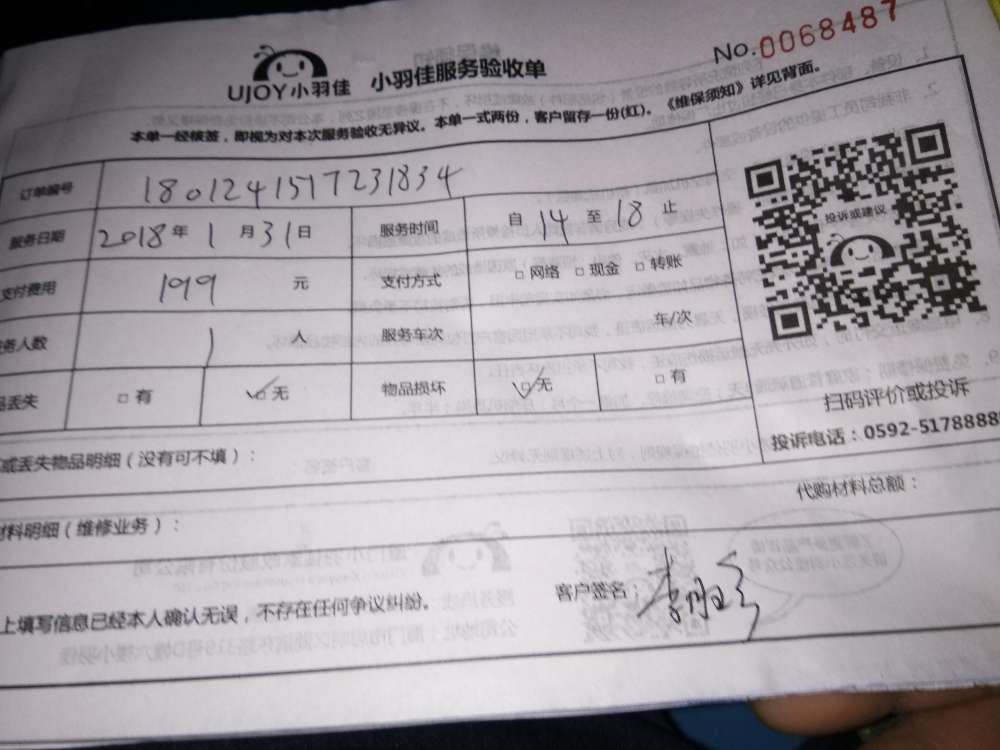 No.0068487
UJOY小羽佳 小羽佳服务验收单
本单一经核签，即视为对本次服务验收无异议。本单一式两份，客户留存一份(红)。《维保须知》详见背面。
订单编号 1801241517231834
服务日期 2018年1月31日 服务时间 自14至18止
支付费用 199 元 支付方式 □网络 □现金 □转账
务人数 1 人 服务车次 车/次
品丢失 □有 ☑无 物品损坏 ☑无 □有
投诉或建议
扫码评价或投诉
投诉电话：0592-5178888
或丢失物品明细（没有可不填）：
材料明细（维修业务）： 代购材料总额：
上填写信息已经本人确认无误，不存在任何争议纠纷。 客户签名：